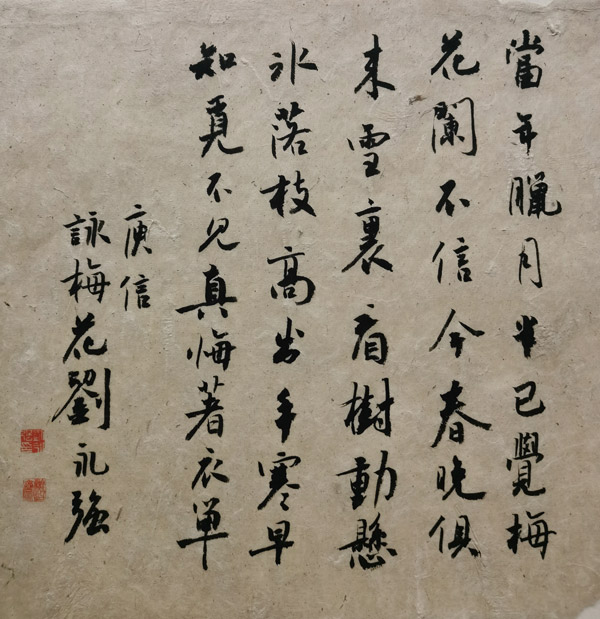 當年臘月半已覺梅
花闌不信今春晚俱
来雪裏看樹動懸
冰落枝高出手寒早
知覓不見真悔著衣单
庾信
詠梅花劉永强